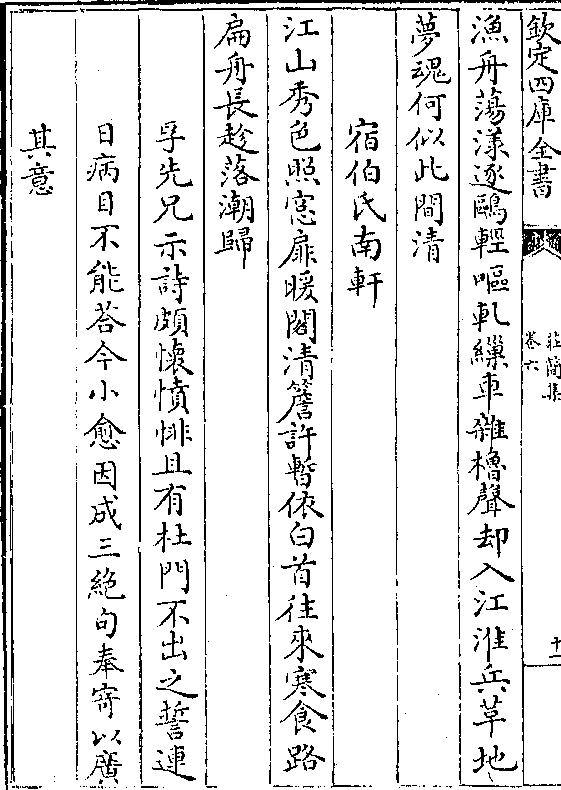 欽定四庫全書
莊簡集
卷六
十一
漁舟蕩漾逐鷗輕嘔軋繅車雜櫓聲却入江淮兵草地
夢魂何似此間清
宿伯氏南軒
江山秀色照窓扉暖閣清簷許暫依白首往來寒食路
扁舟長趁落潮歸
孚先兄示詩頗懷憤悱且有杜門不出之誓連
日病目不能荅今小愈因成三絶句奉寄以廣
其意